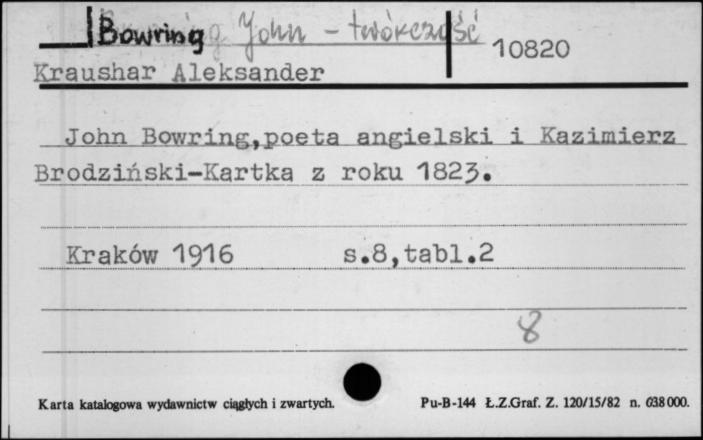 Bowring John - twórczość
10820
Kraushar Aleksander
John Bowring,poeta angielski i Kazimierz
Brodziński-Kartka z roku 1823.
Kraków 1916 s.8,tabl.2
8
Karta katalogowa wydawnictw ciągłych i zwartych. Pu-B-144 Ł.Z.Graf. Z. 120/15/82 n. 038000.